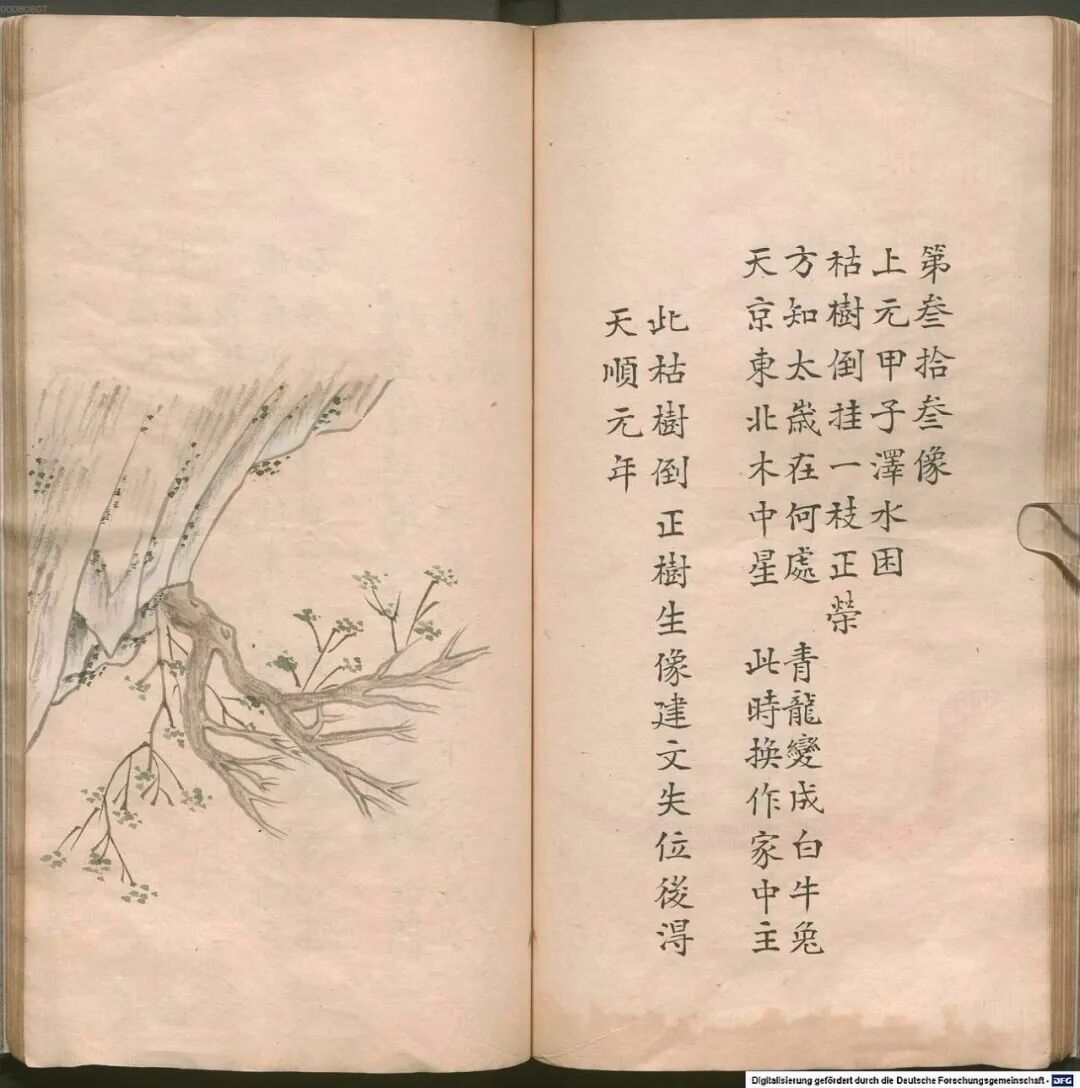 00080807
第叁拾叁像
上元甲子澤水困
枯樹倒挂一枝正荣
方知太嵗在何處 青龍變成白牛兔
天京東北木中星 此時换作家中主
此枯樹倒 正樹生像建文失位後淂
天順元年
Digitalisierung gefördert durch die Deutsche Forschungsgemeinschaft - DFG